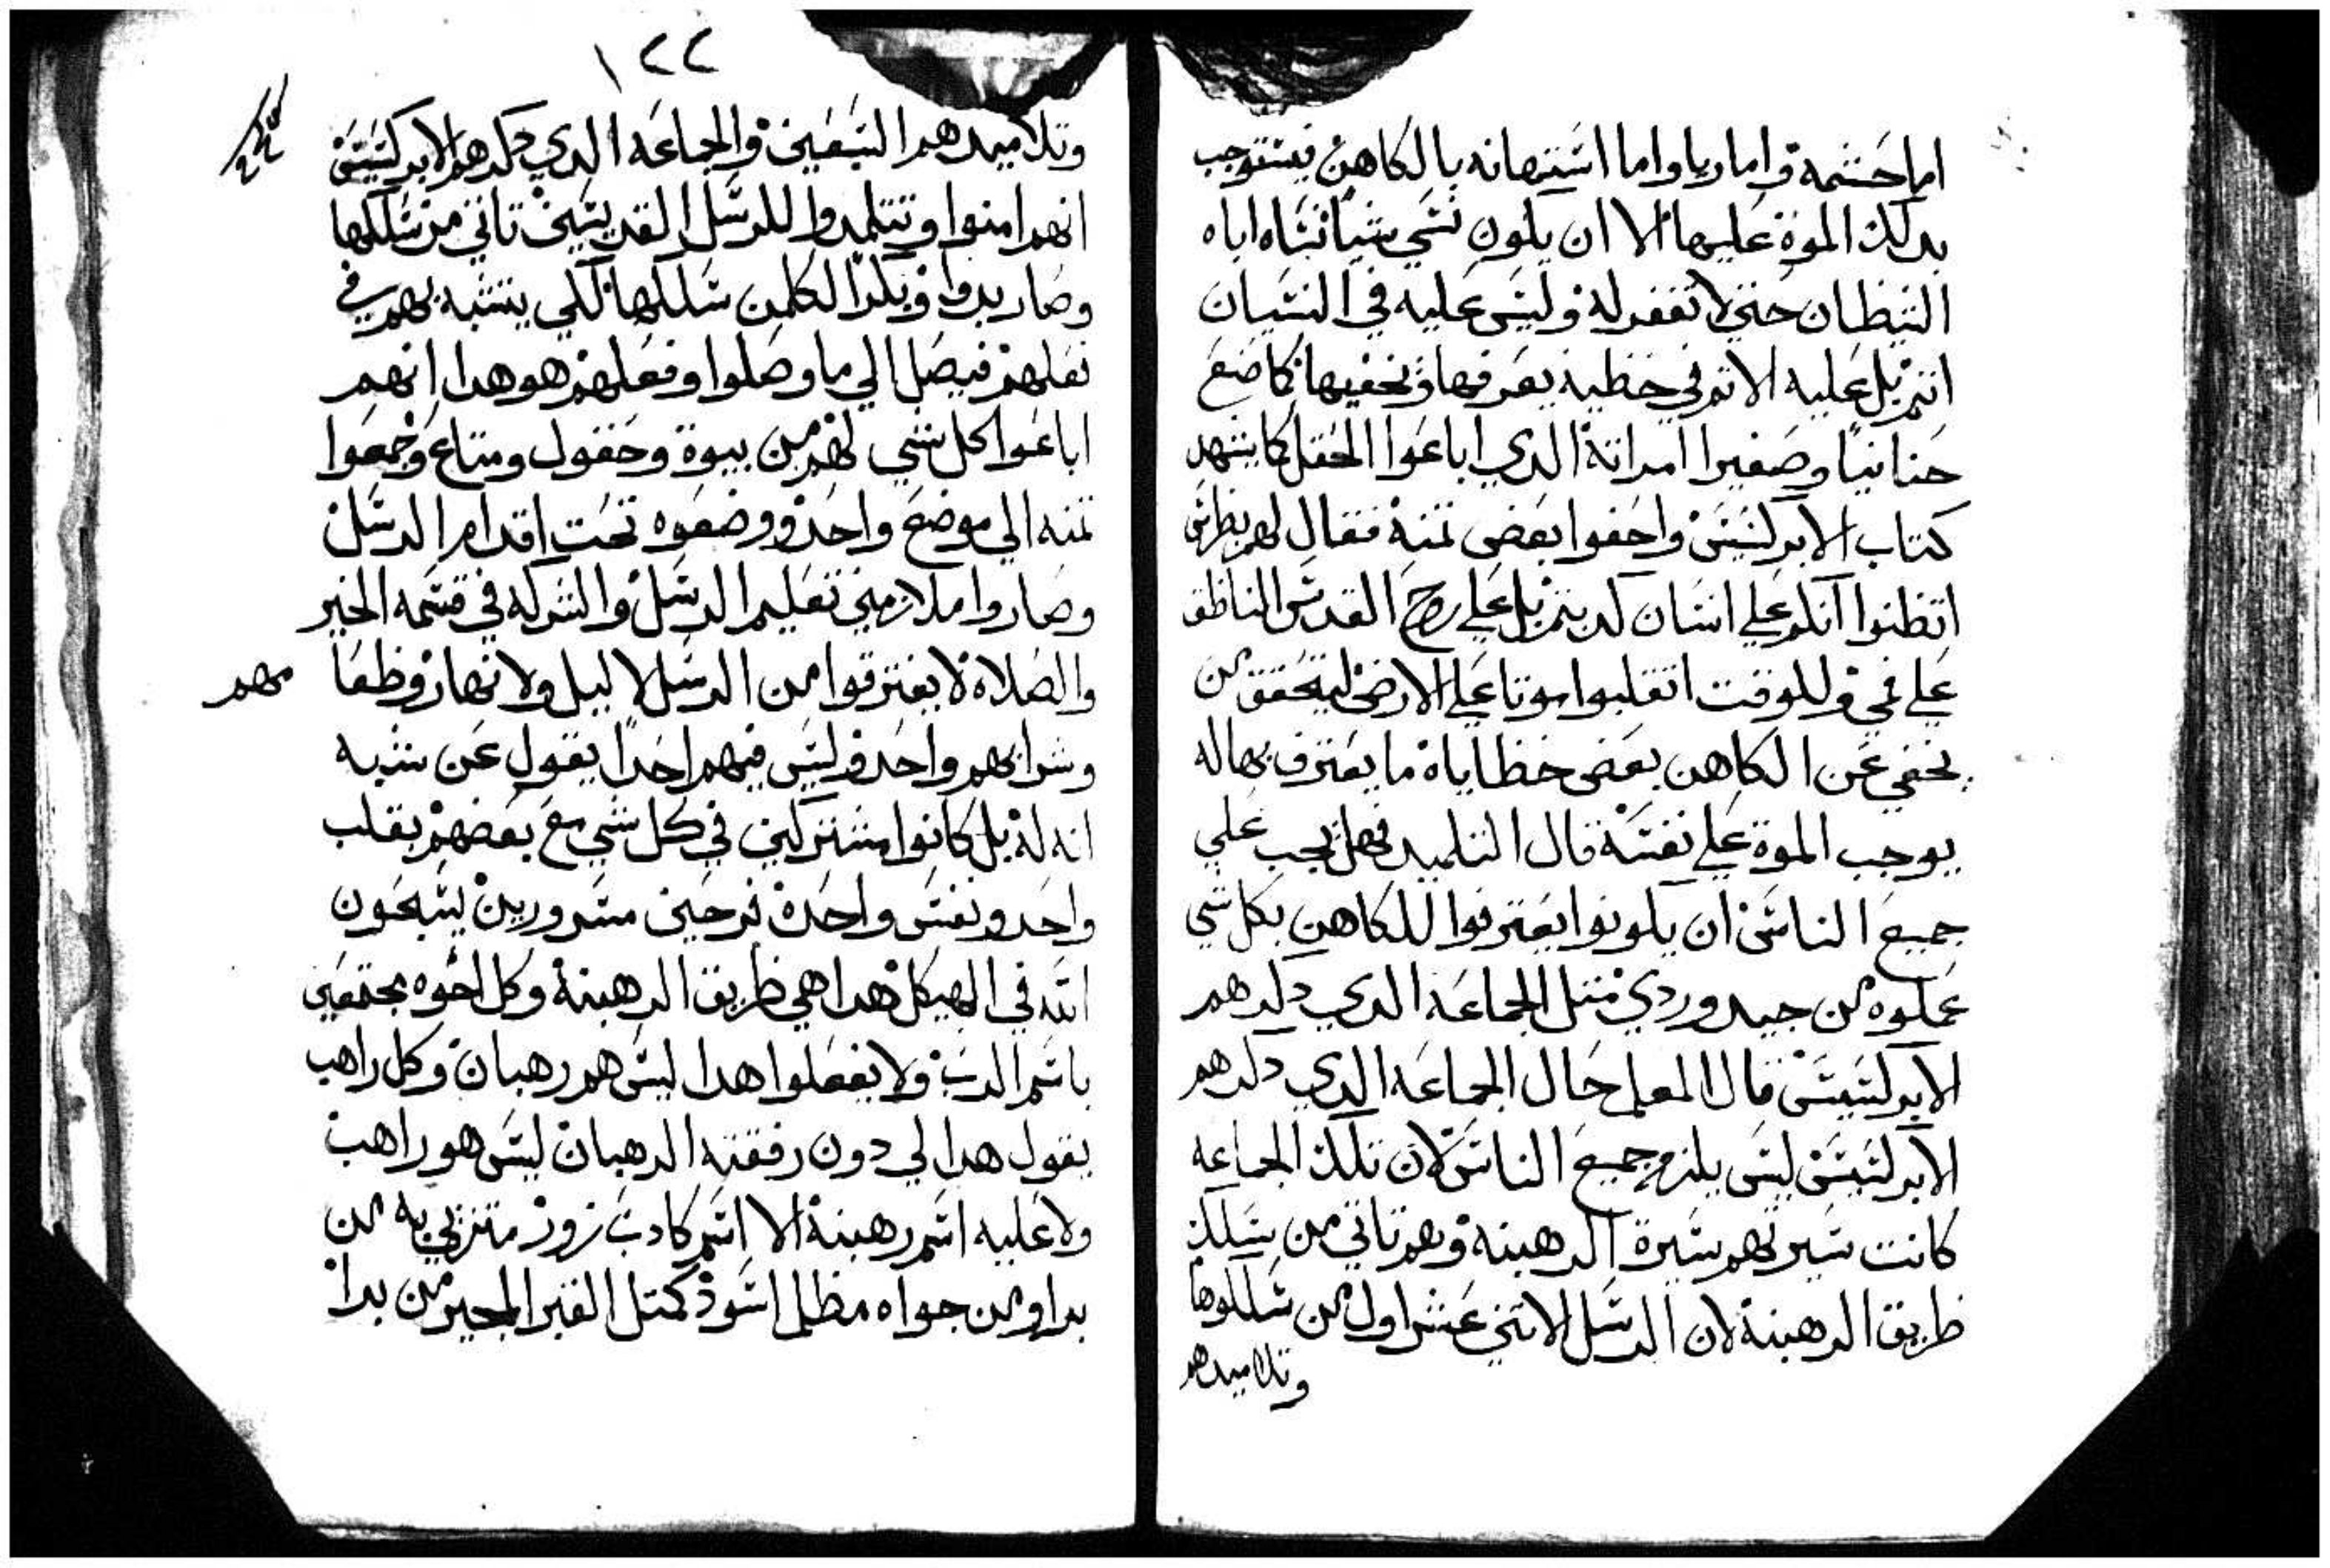 اما حشمة واما ريا واما استهانه بالكاهن فيستوجب
بدلك الموة عليها الا ان يكون نسي شيا نساه اياه
الشيطان حتي لا تغفر له وليس عليه في النسيان
اتم بل عليه الاتم في خطية يعرفها ويخفيها كما صنع
حنانيا وصفيرا امراته الدي اباعوا الحقل كما يشهد
كتاب الابركسيس واخفوا بعض تمنه فقال لهم بطرس
اتظنوا انكم علي انسان كدبتم بل علي روح القدس الناطق
علي فمي وللوقت انقلبوا موتا علي الارض ليتحقق من
يخفي عن الكاهن بعض خطاياه ما يعترف بها له
يوجب الموة علي نفسه قال التلميد فهل يجب علي
جميع الناس ان يكونوا يعترفوا للكاهن بكل شي
عملوه من جيد وردي متل الجماعه الدي دكرهم
الابركسيس قال المعلم حال الجماعه الدي دكرهم
الابركسيس ليس يلزم جميع الناس لان تلك الجماعه
كانت سيرتهم سيرة الرهبنه وهم تاني من سلك
طريق الرهبنة لان الرسل الاتني عشر اول من سلكوها
وتلاميدهم
١٢٢
وتلاميدهم السبعين والجماعه الدي دكرهم الابركسيس
انهم امنوا وتتلمدوا للرسل القديسين تاني من سلكها
وصاربدوا وبكرا لكلمن سلكها لكي يتشبه بهم في
فعلهم فيصل الي ما وصلوا وفعلهم هو هدا انهم
اباعوا كل شي لهم من بيوة وحقول ومتاع وجمعوا
تمنه الي موضع واحد ووضعوه تحت اقدام الرسل
وصاروا ملازمين تعليم الرسل والشركه في قسمه الخبز
والصلاة لا يفترقوا من الرسل لا ليل ولا نهار وطعا
مهم
وشرابهم واحد وليس فيهم احدا يقول عن شيه
انه له بل كانوا مشتركين في كل شي مع بعضهم بقلب
واحد ونفس واحدة فرحين مسرورين يسبحون
الله في الهيكل هدا هي طريق الرهبنة وكل اخوه مجتمعين
باسم الرب ولا يفعلوا هدا ليس هم رهبان وكل راهب
يقول هدا لي دون رفقته الرهبان ليس هو راهب
ولا عليه اسم رهبنة الا اسم كادب زور متزيي به من
برا ومن جواه مظلم اسود كمتل القبر المجير من برا